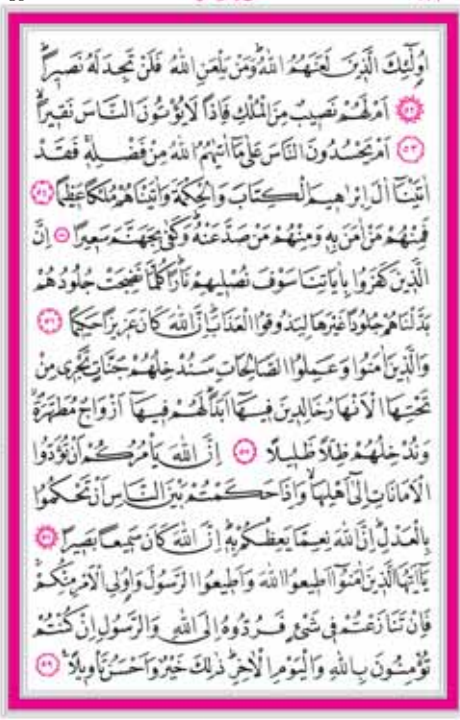 اُولٰٓئِكَ الَّذ۪ينَ لَعَنَهُمُ اللّٰهُۜ وَمَنْ يَلْعَنِ اللّٰهُ فَلَنْ تَجِدَ لَهُ نَص۪يرًاۜ
﴿٥٢﴾ اَمْ لَهُمْ نَص۪يبٌ مِنَ الْمُلْكِ فَاِذًا لَا يُؤْتُونَ النَّاسَ نَق۪يرًاۙ
﴿٥٣﴾ اَمْ يَحْسُدُونَ النَّاسَ عَلٰى مَٓا اٰتٰيهُمُ اللّٰهُ مِنْ فَضْلِه۪ۚ فَقَدْ
اٰتَيْنَٓا اٰلَ اِبْرٰه۪يمَ الْكِتَابَ وَالْحِكْمَةَ وَاٰتَيْنَاهُمْ مُلْكًا عَظ۪يمًا ﴿٥٤﴾
فَمِنْهُمْ مَنْ اٰمَنَ بِه۪ وَمِنْهُمْ مَنْ صَدَّ عَنْهُۜ وَكَفٰى بِجَهَنَّمَ سَع۪يرًا ﴿٥٥﴾ اِنَّ
الَّذ۪ينَ كَفَرُوا بِاٰيَاتِنَا سَوْفَ نُصْل۪يهِمْ نَارًاۜ كُلَّمَا نَضِجَتْ جُلُودُهُمْ
بَدَّلْنَاهُمْ جُلُودًا غَيْرَهَا لِيَذُوقُوا الْعَذَابَۜ اِنَّ اللّٰهَ كَانَ عَز۪يزًا حَك۪يمًا ﴿٥٦﴾
وَالَّذ۪ينَ اٰمَنُوا وَعَمِلُوا الصَّالِحَاتِ سَنُدْخِلُهُمْ جَنَّاتٍ تَجْر۪ي مِنْ
تَحْتِهَا الْاَنْهَارُ خَالِد۪ينَ ف۪يهَٓا اَبَدًاۜ لَهُمْ ف۪يهَٓا اَزْوَاجٌ مُطَهَّرَةٌۘ
وَنُدْخِلُهُمْ ظِلًّا ظَل۪يلًا ﴿٥٧﴾ اِنَّ اللّٰهَ يَأْمُرُكُمْ اَنْ تُؤَدُّوا
الْاَمَانَاتِ اِلٰٓى اَهْلِهَاۙ وَاِذَا حَكَمْتُمْ بَيْنَ النَّاسِ اَنْ تَحْكُمُوا
بِالْعَدْلِۜ اِنَّ اللّٰهَ نِعِمَّا يَعِظُكُمْ بِه۪ۜ اِنَّ اللّٰهَ كَانَ سَم۪يعًا بَص۪يرًا ﴿٥٨﴾
يَٓا اَيُّهَا الَّذ۪ينَ اٰمَنُٓوا اَط۪يعُوا اللّٰهَ وَاَط۪يعُوا الرَّسُولَ وَاُو۬لِي الْاَمْرِ مِنْكُمْۚ
فَاِنْ تَنَازَعْتُمْ ف۪ي شَيْءٍ فَرُدُّوهُ اِلَى اللّٰهِ وَالرَّسُولِ اِنْ كُنْتُمْ
تُؤْمِنُونَ بِاللّٰهِ وَالْيَوْمِ الْاٰخِرِۜ ذٰلِكَ خَيْرٌ وَاَحْسَنُ تَأْو۪يلًا۟ ﴿٥٩﴾